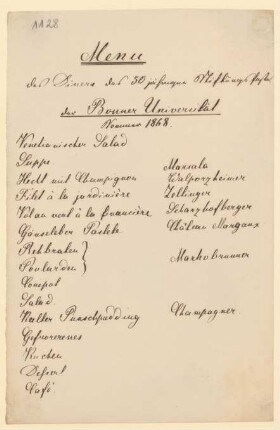 1128
Menu
des Diners des 50 jährigen Stiftungsfestes
der Bonner Universität
Sommer 1868.
Venetianischer Salad
Suppe Marsala
Hecht mit Champignon Walporzheimer
Filet à la jardinière Zeltinger
Vol au vent à la financière Scharzhofberger
Gänseleber Pastete Château Margaux
Rehbraten
Poularden Markobrunner
Compot
Salad
Kalter Punschpudding Champagner
Gefrorenes
Kuchen
Dessert
Café